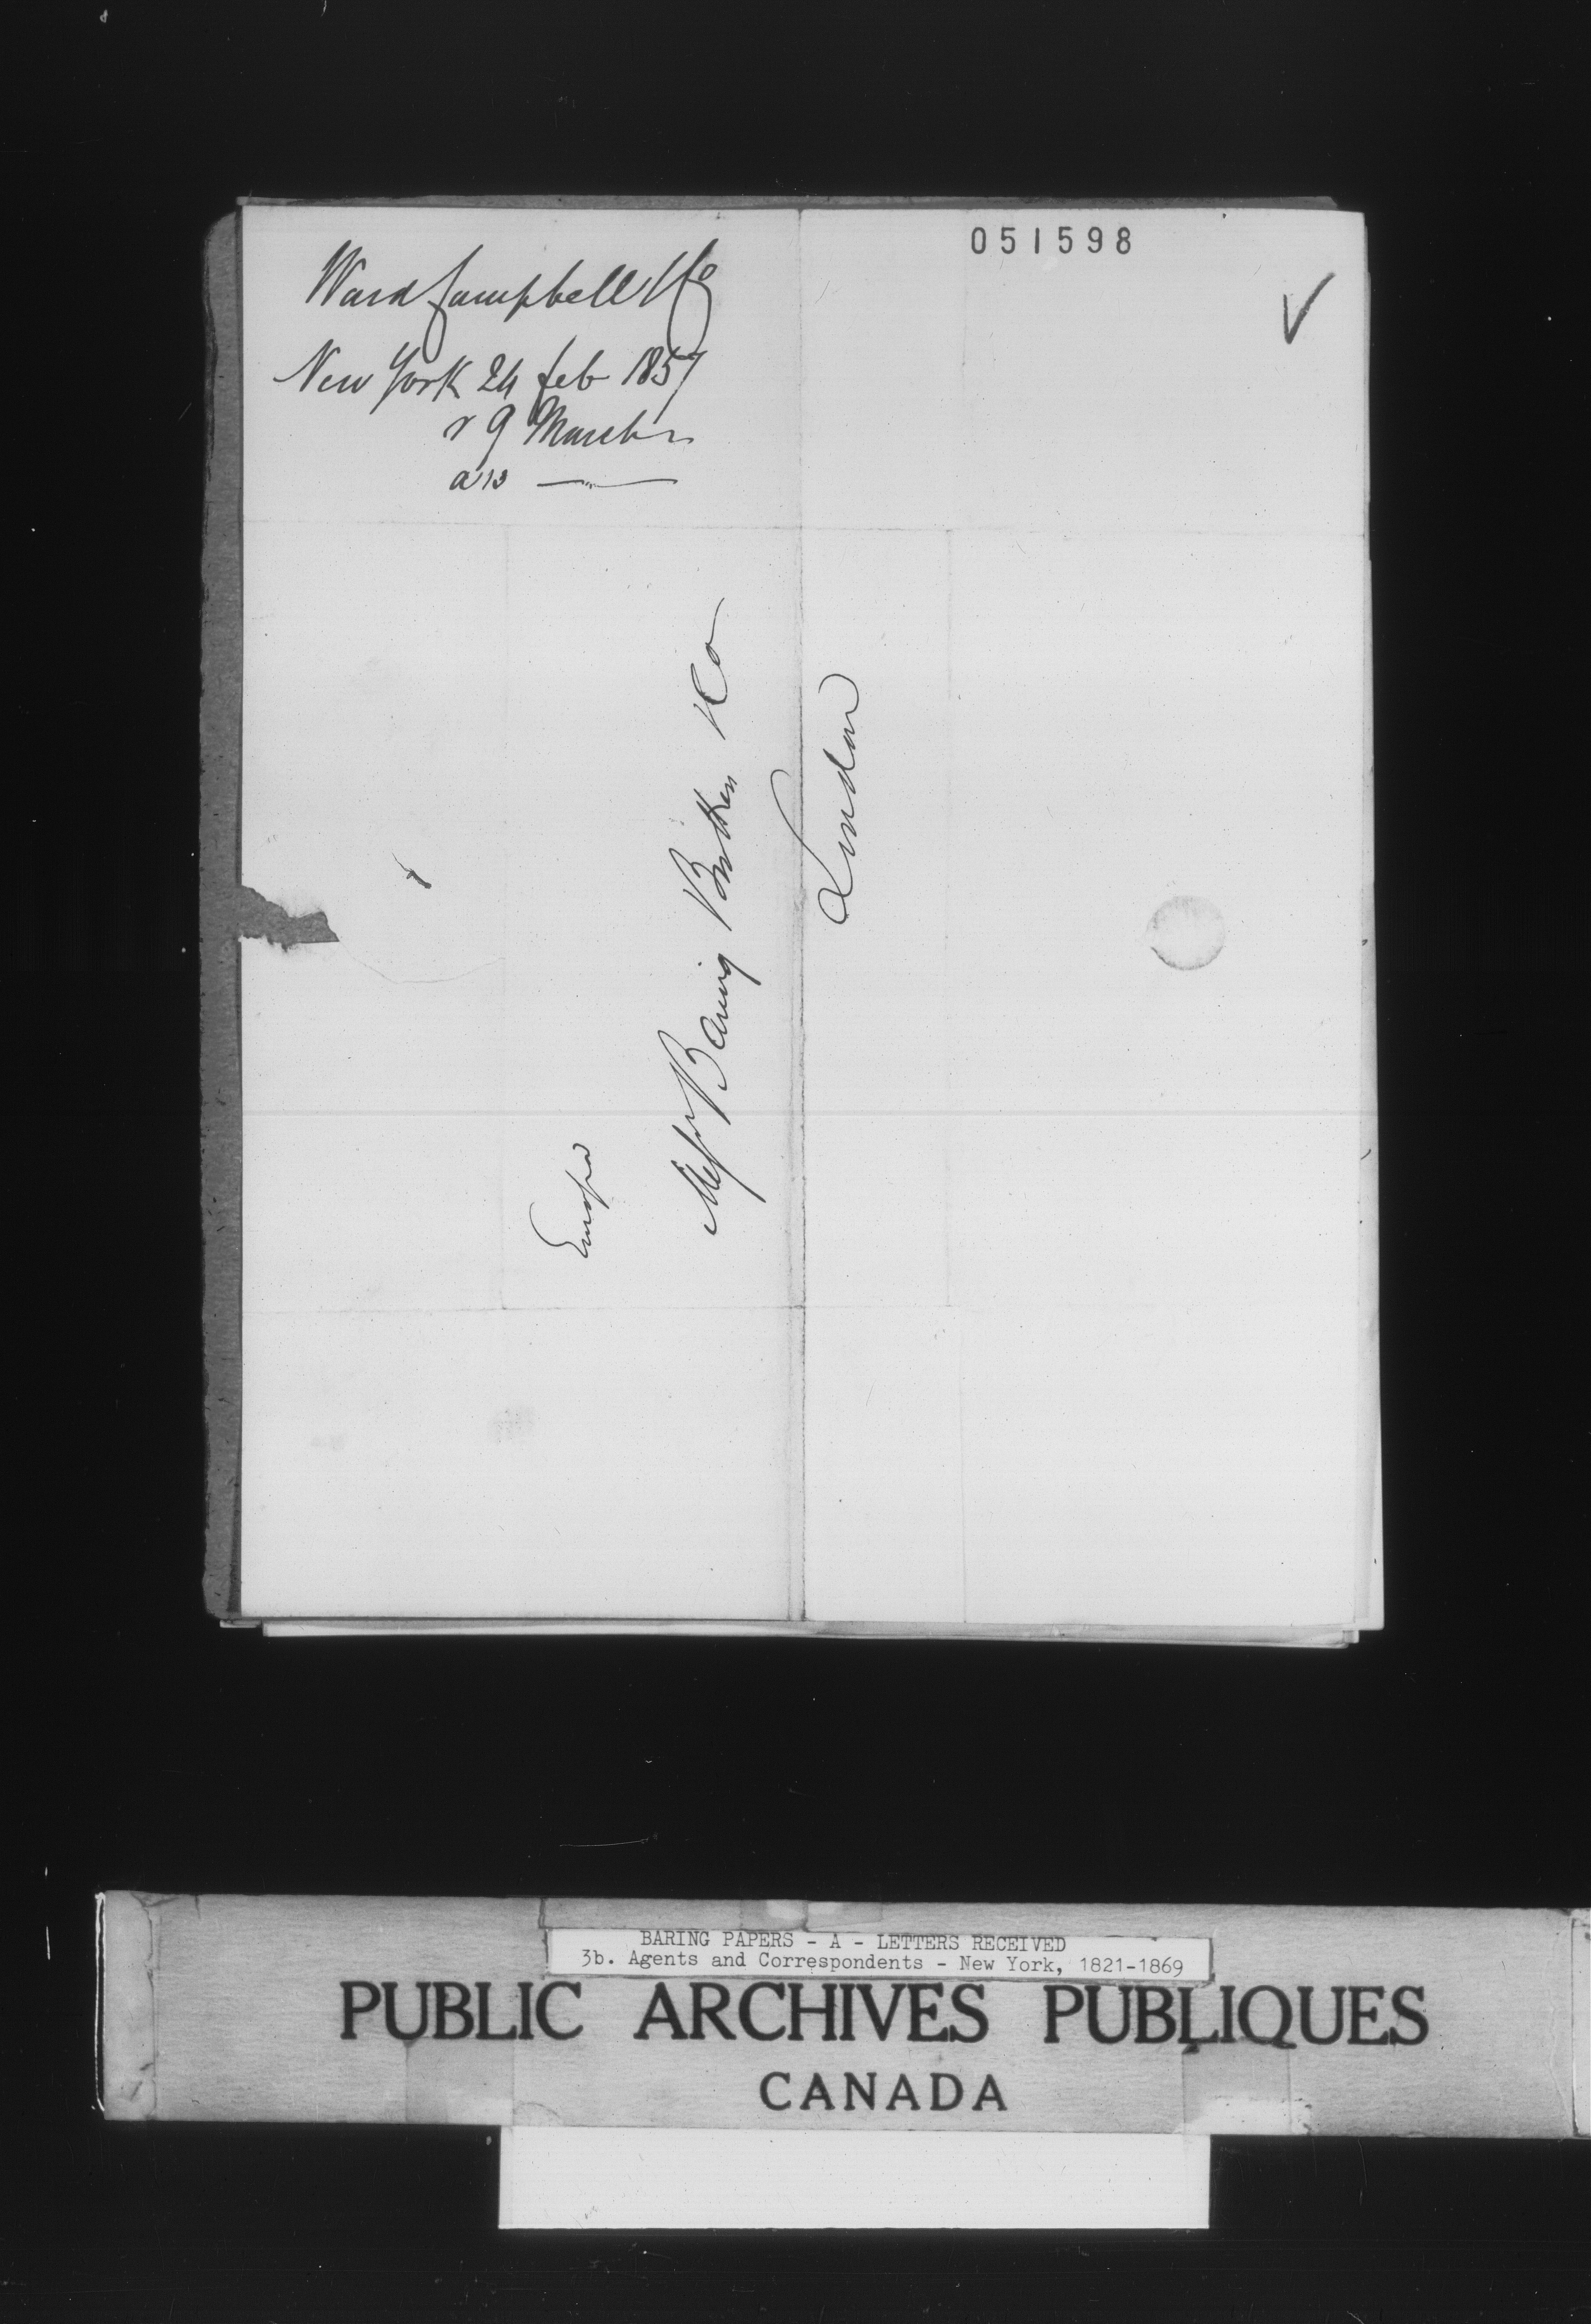 051598
Ward Campbell & Co
New York 24 feb 1857
r 9 March
a 13 — „ —
Europa
Messrs Baring Brothers & Co
London
BARING PAPERS - A - LETTERS RECEIVED
3b. Agents and Correspondents - New York, 1821-1869
PUBLIC ARCHIVES PUBLIQUES
CANADA